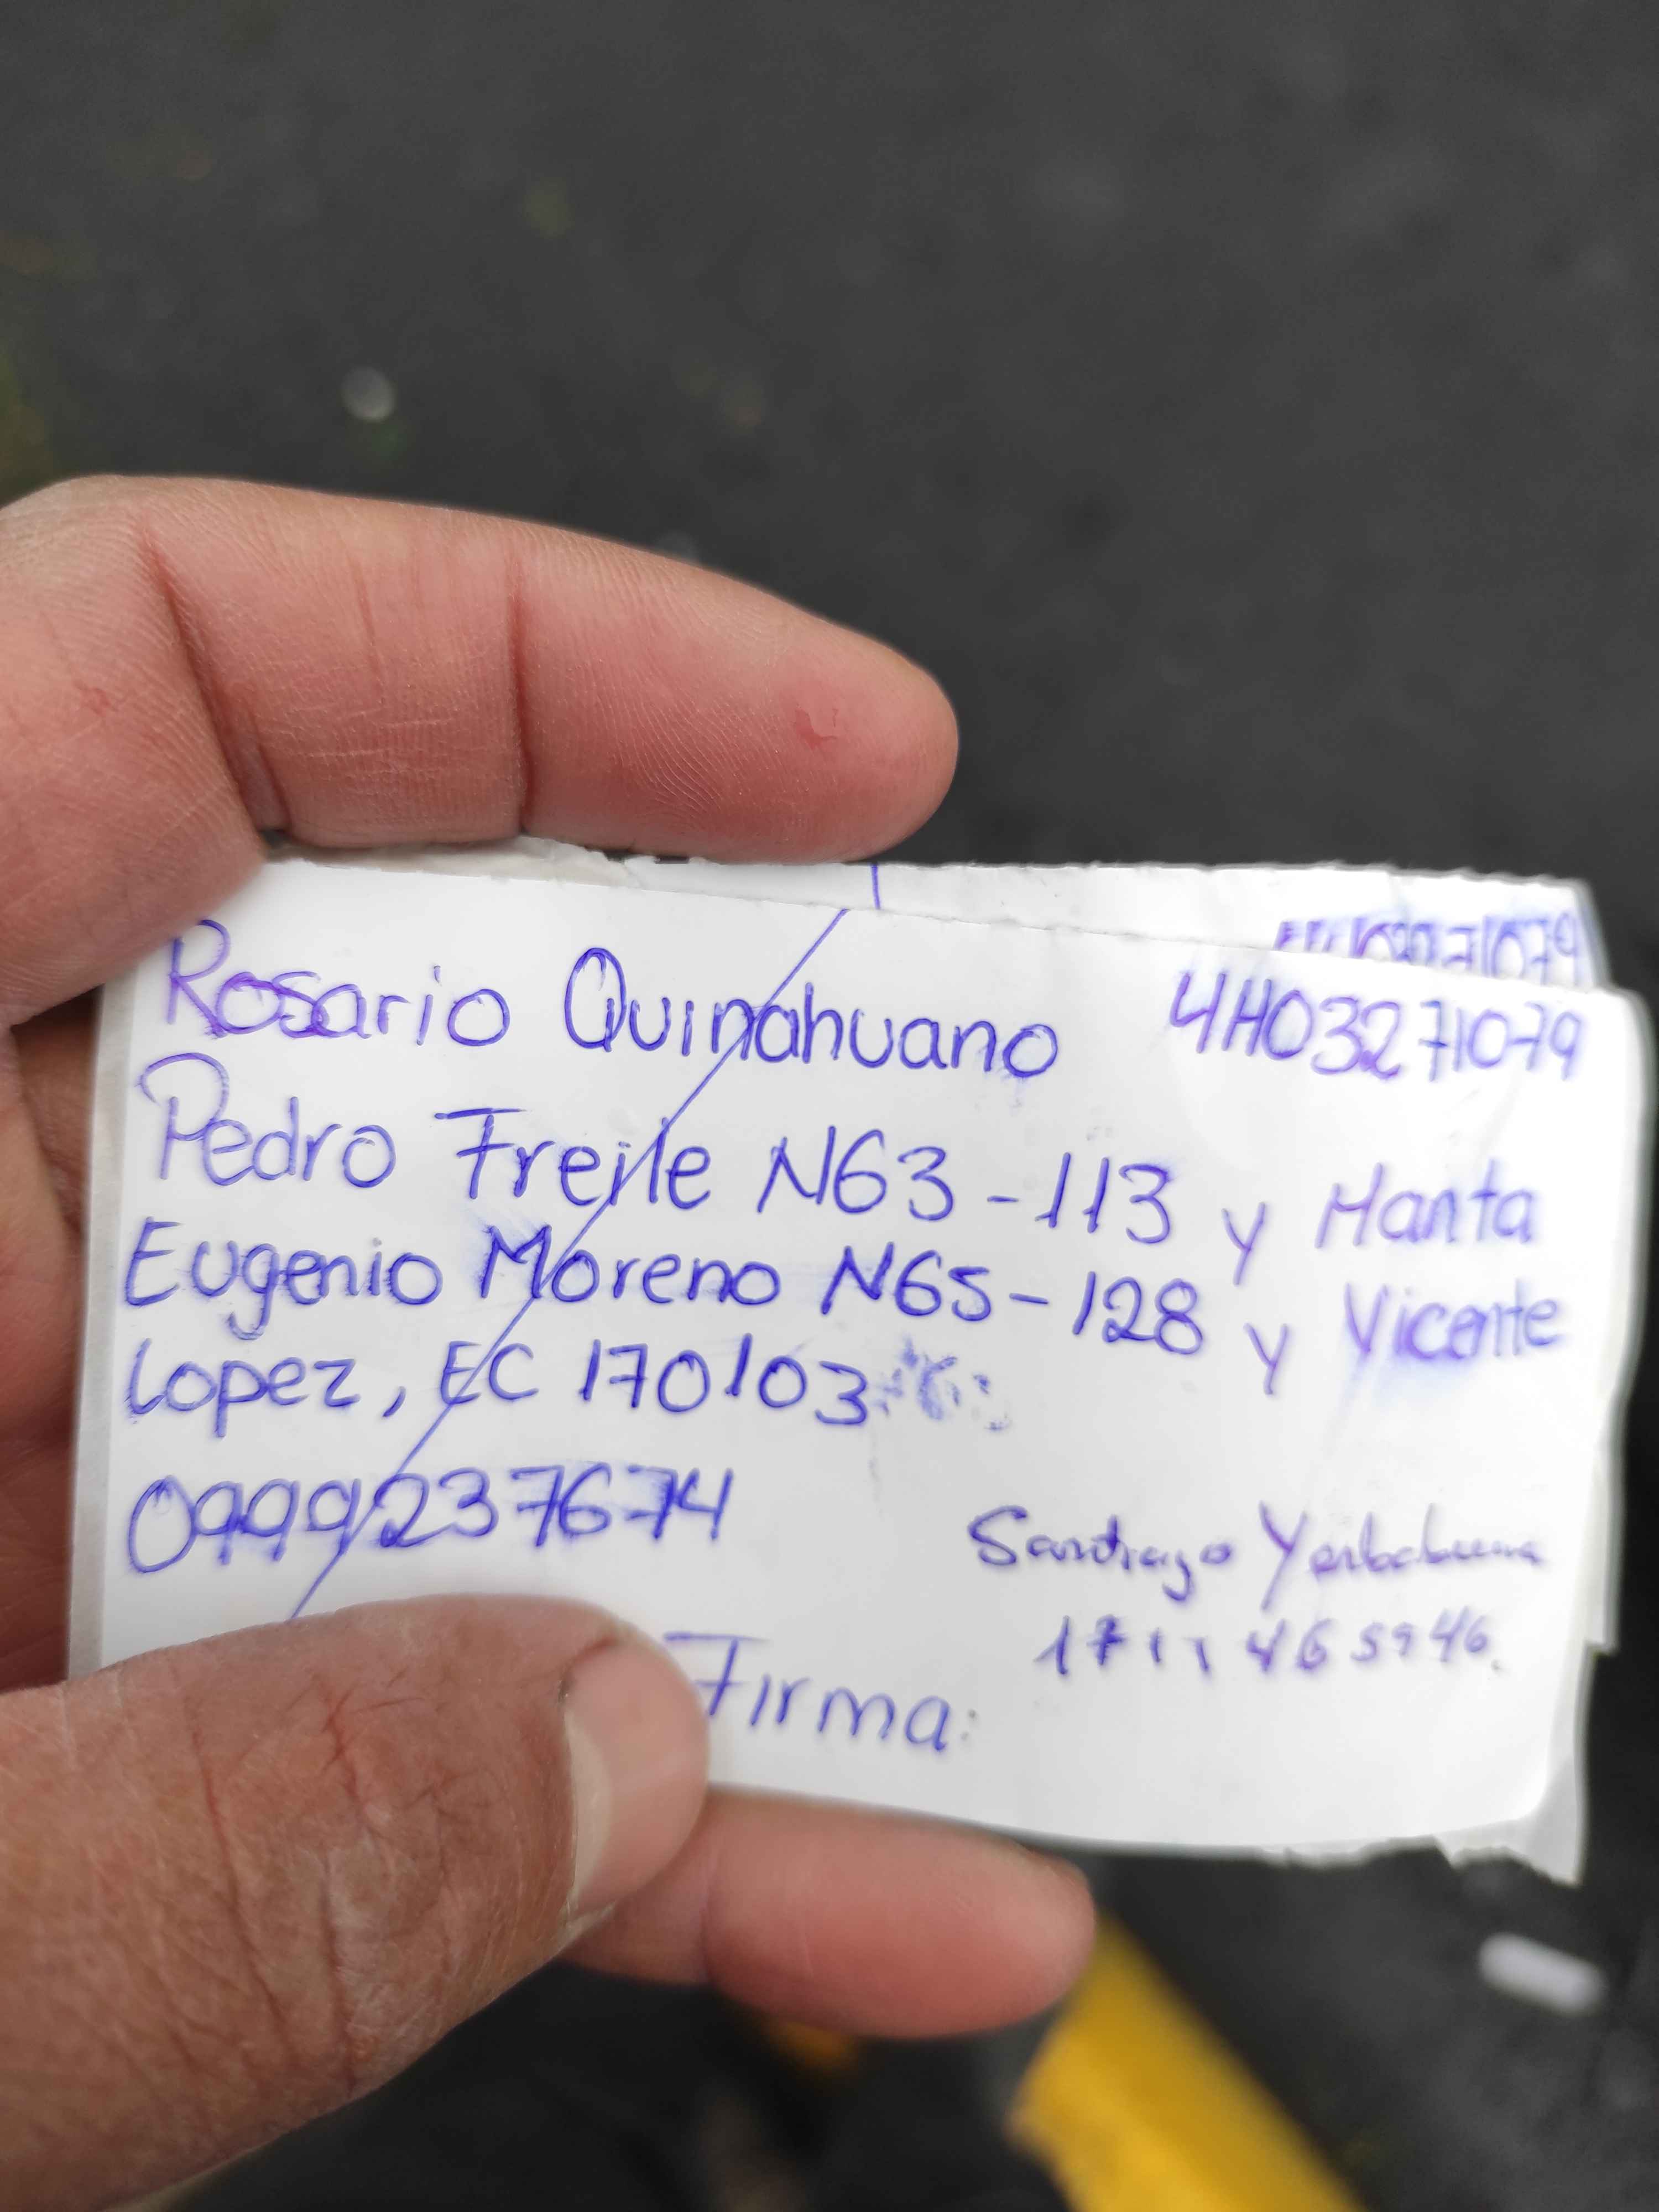 Rosario Quinahuano 4H03271079
Pedro Freile N63-113 y Manta
Eugenio Moreno N65-128 y Vicente
Lopez, EC 170103
0999237674
Santiago Yerbabuena
Firma: